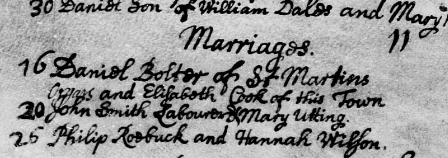 30 Daniel Son of William Dales and Mary
Marriages. 11
16 Daniel Bolter of St Martins
and Elisabeth Cook of this Town
20 John Smith Labourer & Mary Utting.
25 Philip Roebuck and Hannah Wilson.